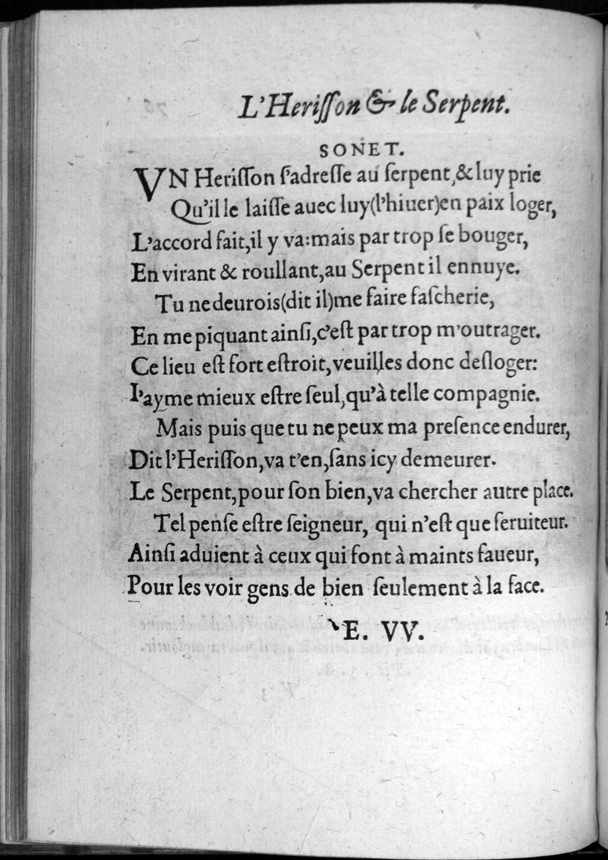 L'Heriſſon & le Serpent.
SONET.
VN Heriſſon ſ'adreſſe au ſerpent,& luy prie
Qu'il le laiſſe auec luy(l'hiuer)en paix loger,
L'accord fait,il y va:mais par trop ſe bouger,
En virant & roullant,au Serpent il ennuye.
Tu ne deurois(dit il)me faire faſcherie,
En me piquant ainſi,c'eſt par trop m'outrager.
Ce lieu eſt fort eſtroit,veuilles donc deſloger:
I'ayme mieux eſtre ſeul,qu'à telle compagnie.
Mais puis que tu ne peux ma preſence endurer,
Dit l'Heriſſon,va t'en,ſans icy demeurer.
Le Serpent,pour ſon bien,va chercher autre place.
Tel penſe eſtre ſeigneur, qui n'eſt que ſeruiteur.
Ainſi aduient à ceux qui font à maints faueur,
Pour les voir gens de bien ſeulement à la face.
E. VV.